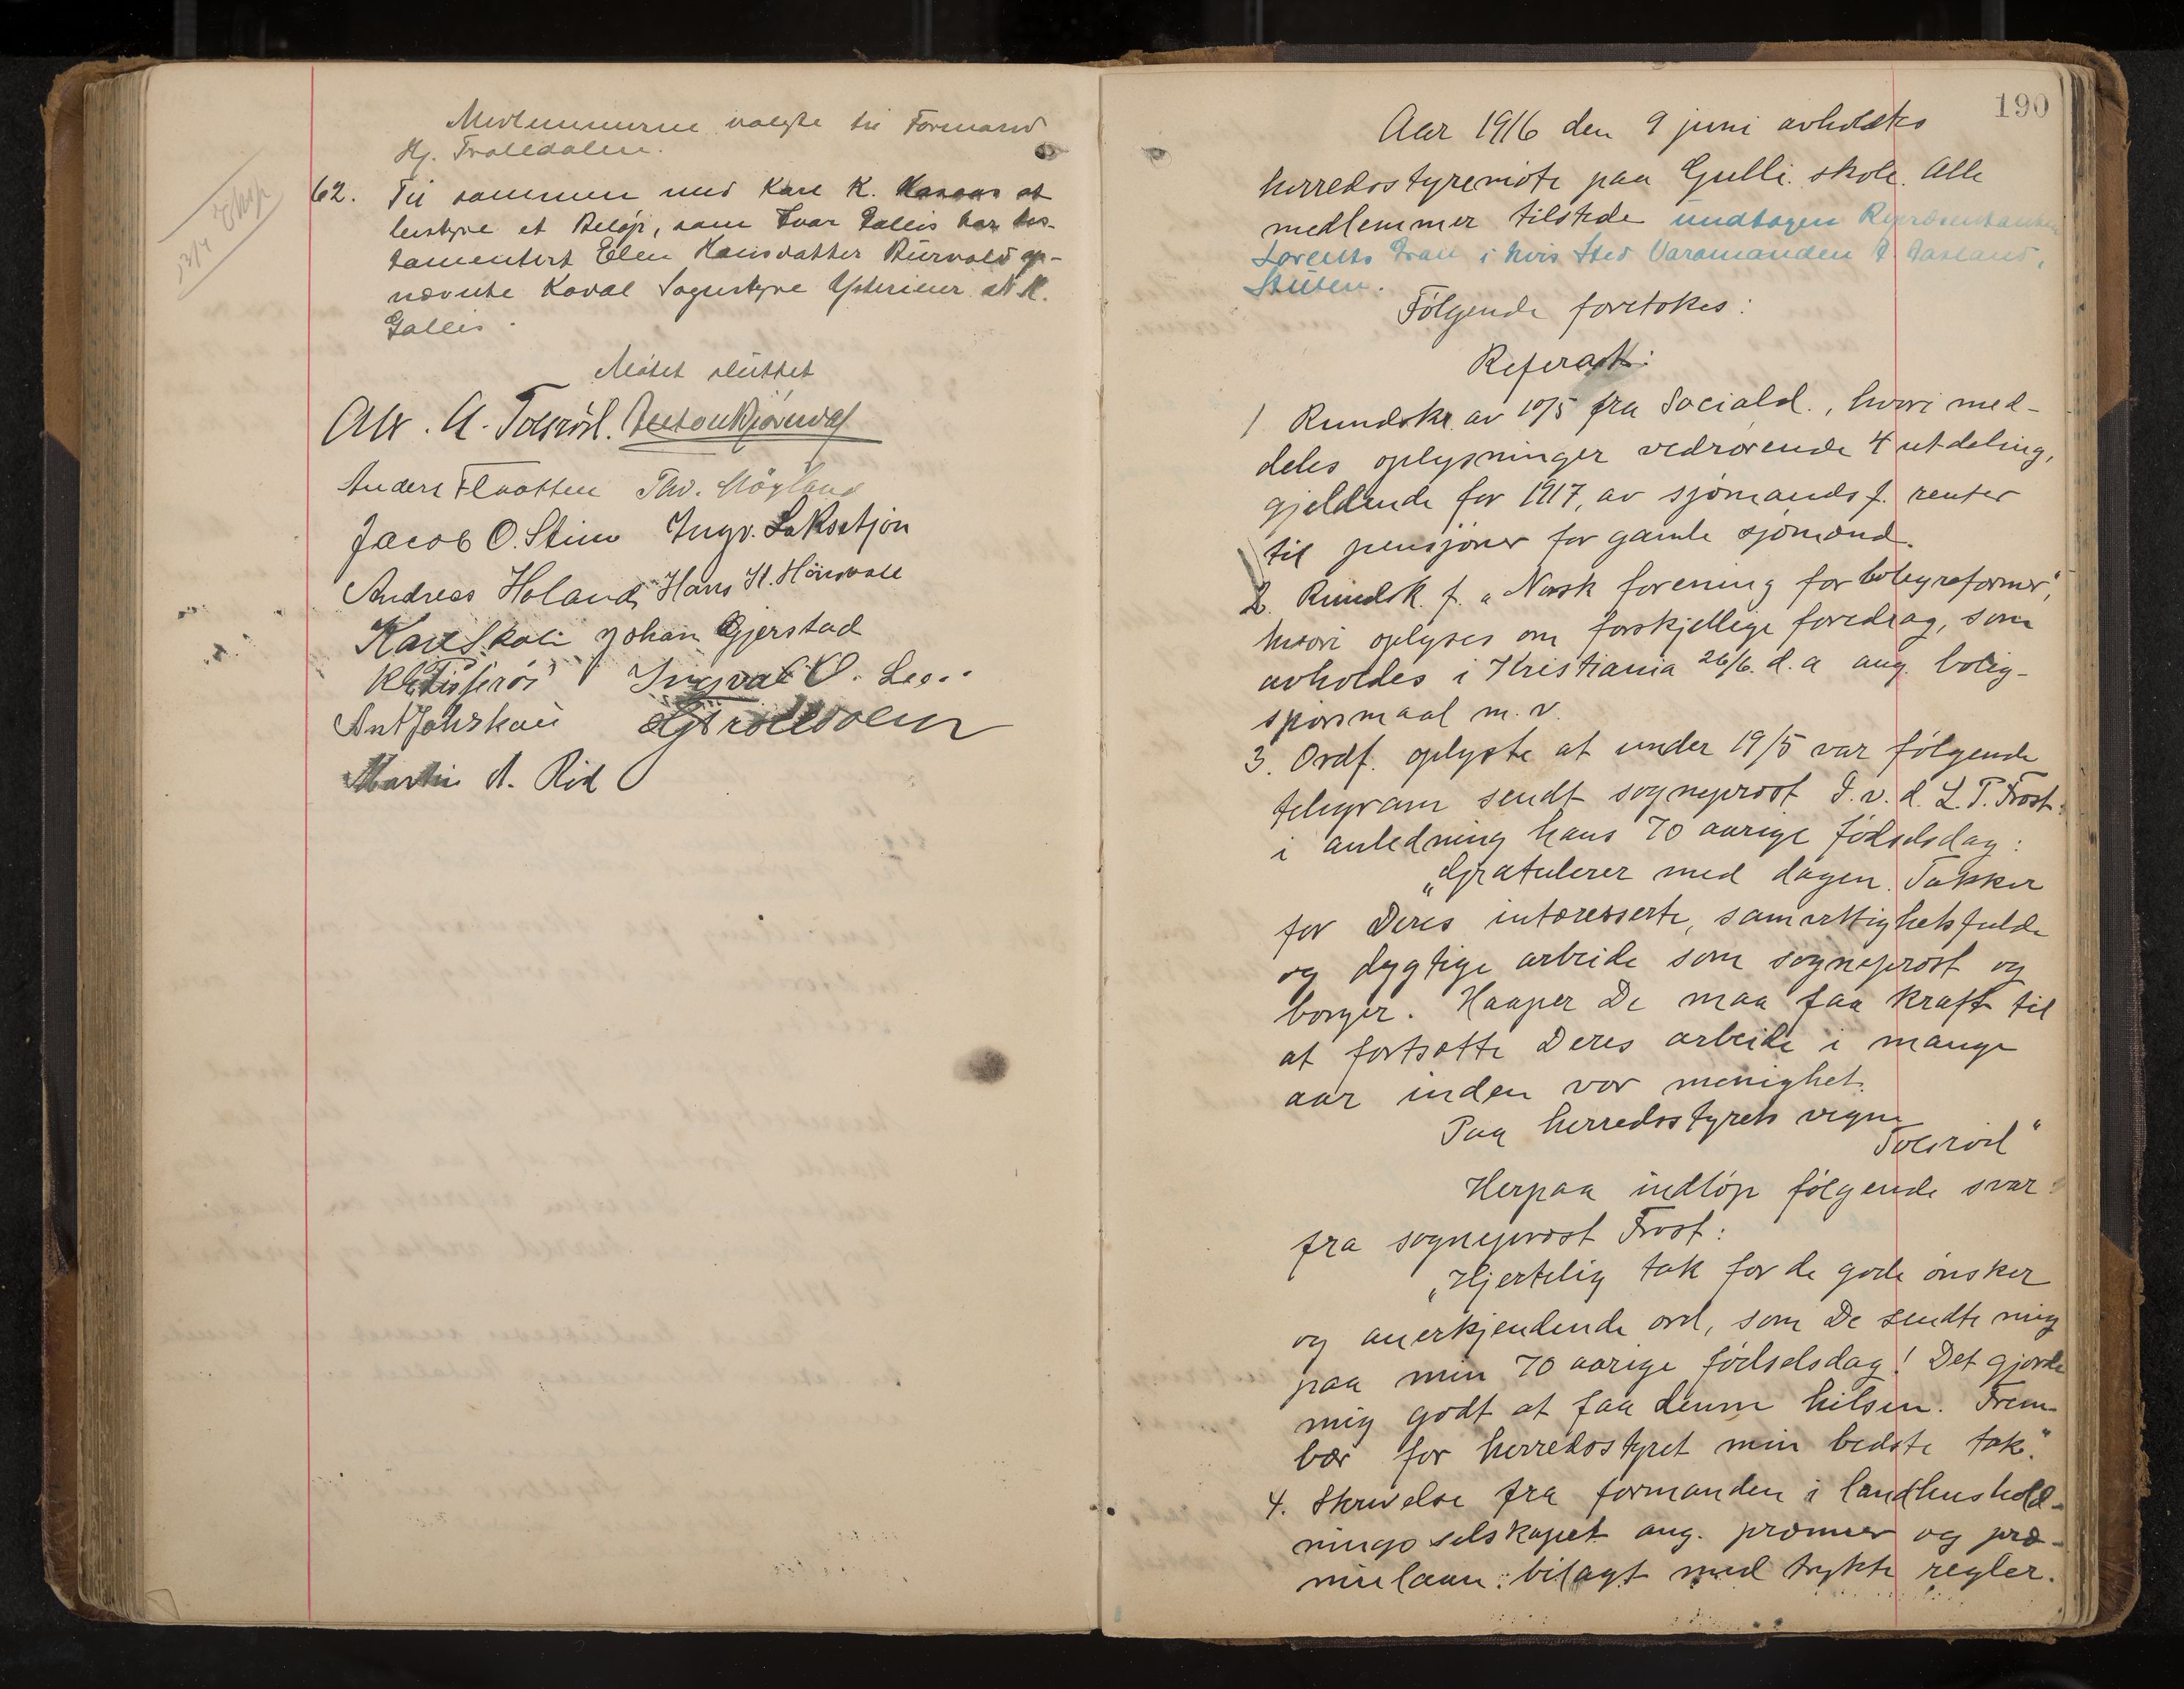 Medlemmerne valgte til Formand
Hj. Trolldalen.
Eksp
13/4
62. Til sammen med Kare K. at
bestyre et Beløp, som Ivar Gallis har tes-
tamentert Elen Hansdatter
nævnte Sogustyre
Gallis.
Møtet sluttet
Alv. A. Tolsrød. Anton Bjørndal
Anders Flaatten Thv. Møyland
Jacob O. Stien Ingv. Laksetjøn
Andreas Holand Hans H. Hønsvall
Karl Skoli Johan Gjerstad
Ingval O.
Ant Johs Hj Trolldalen
Martin A. Rød
190
Aar 1916 den 9 juni avholdtes
herredsstyremøte paa Gulli skole. Alle
medlemmer tilstede undtagen Repræsentanten
Lorents i hvis Sted Varamanden
Følgende foretokes:
Referat:
1 Rundskr. av 10/5 fra Sociald., hvori med-
deles oplysninger vedrørende 4 utdeling,
gjeldende for 1917, av sjømands f. renter
til pensjoner for gamle sjømænd.
2. Rundsk. f. „Norsk forening for boligreformer",
hvori oplyses om forskjellige foredrag, som
avholdes i Kristiania 26/6. d. a ang. bolig-
spørsmaal m. v.
3. Ordf. oplyste at under 19/5 var følgende
telegram sendt sogneprost S. v. d. L. P. Frost
i anledning hans 70 aarige fødselsdag:
„Gratulerer med dagen. Takker
for Deres interesserte, samvittighetsfulde
og dygtige arbeide som sogneprost og
borger. Haaper De maa faa kraft til
at fortsætte Deres arbeide i mange
aar inden vor menighet.
Paa herredsstyrets vegne
Tolsrød"
Herpaa indløp følgende svar
fra sogneprost Frost:
„Hjertelig tak for de gode ønsker
og anerkjendende ord, som De sendte mig
paa min 70 aarige fødselsdag! Det gjorde
mig godt at faa denne hilsen. Frem-
bær for herredsstyret min bedste tak."
4. Skrivelse fra formanden i landhushold-
ningsselskapet ang. præmier og præ-
mielaan: bilagt med trykte regler.